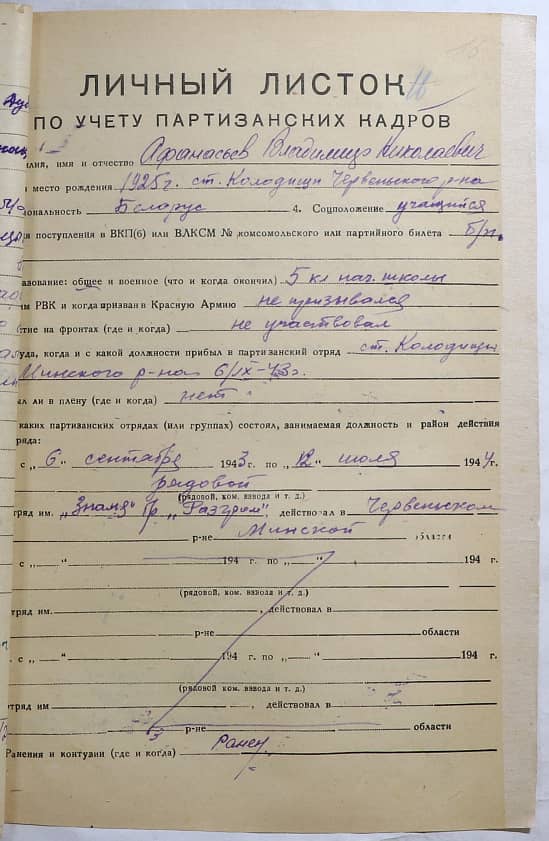 ЛИЧНЫЙ ЛИСТОК
ПО УЧЕТУ ПАРТИЗАНСКИХ КАДРОВ
илия, имя и отчество Афанасьев Владимир Николаевич
и место рождения 1925г. ст. Колодищи Червеньского р-на
иональность Беларус 4. Соцположение учащийся
я поступления в ВКП(б) или ВЛКСМ № комсомольского или партийного билета б/п.
азование: общее и военное (что и когда окончил) 5 кл нач. школы
им РВК и когда призван в Красную Армию не призывался
стие на фронтах (где и когда) не участвовал
уда, когда и с какой должности прибыл в партизанский отряд ст. Колодищи
Минского р-на 6/IX-43г.
ыл ли в плену (где и когда) нет
каких партизанских отрядах (или группах) состоял, занимаемая должность и район действия
ряда:
с „ 6 “ сентября 1943 г. по „ 12 “ июля 1944 г.
рядовой
(рядовой, ком. взвода и т. д.)
тряд им. „Знамя" бр. „Разгром" действовал в Червеньском
р-не Минской области
с „ “ 194 г. по „ “ 194 г.
(рядовой, ком. взвода и т. д.)
тряд им. , действовал в
р-не области
с „ “ 194 г. по „ “ 194 г.
(рядовой, ком. взвода и т. д.)
тряд им , действовал в
р-не области
Ранения и контузии (где и когда) Ранен